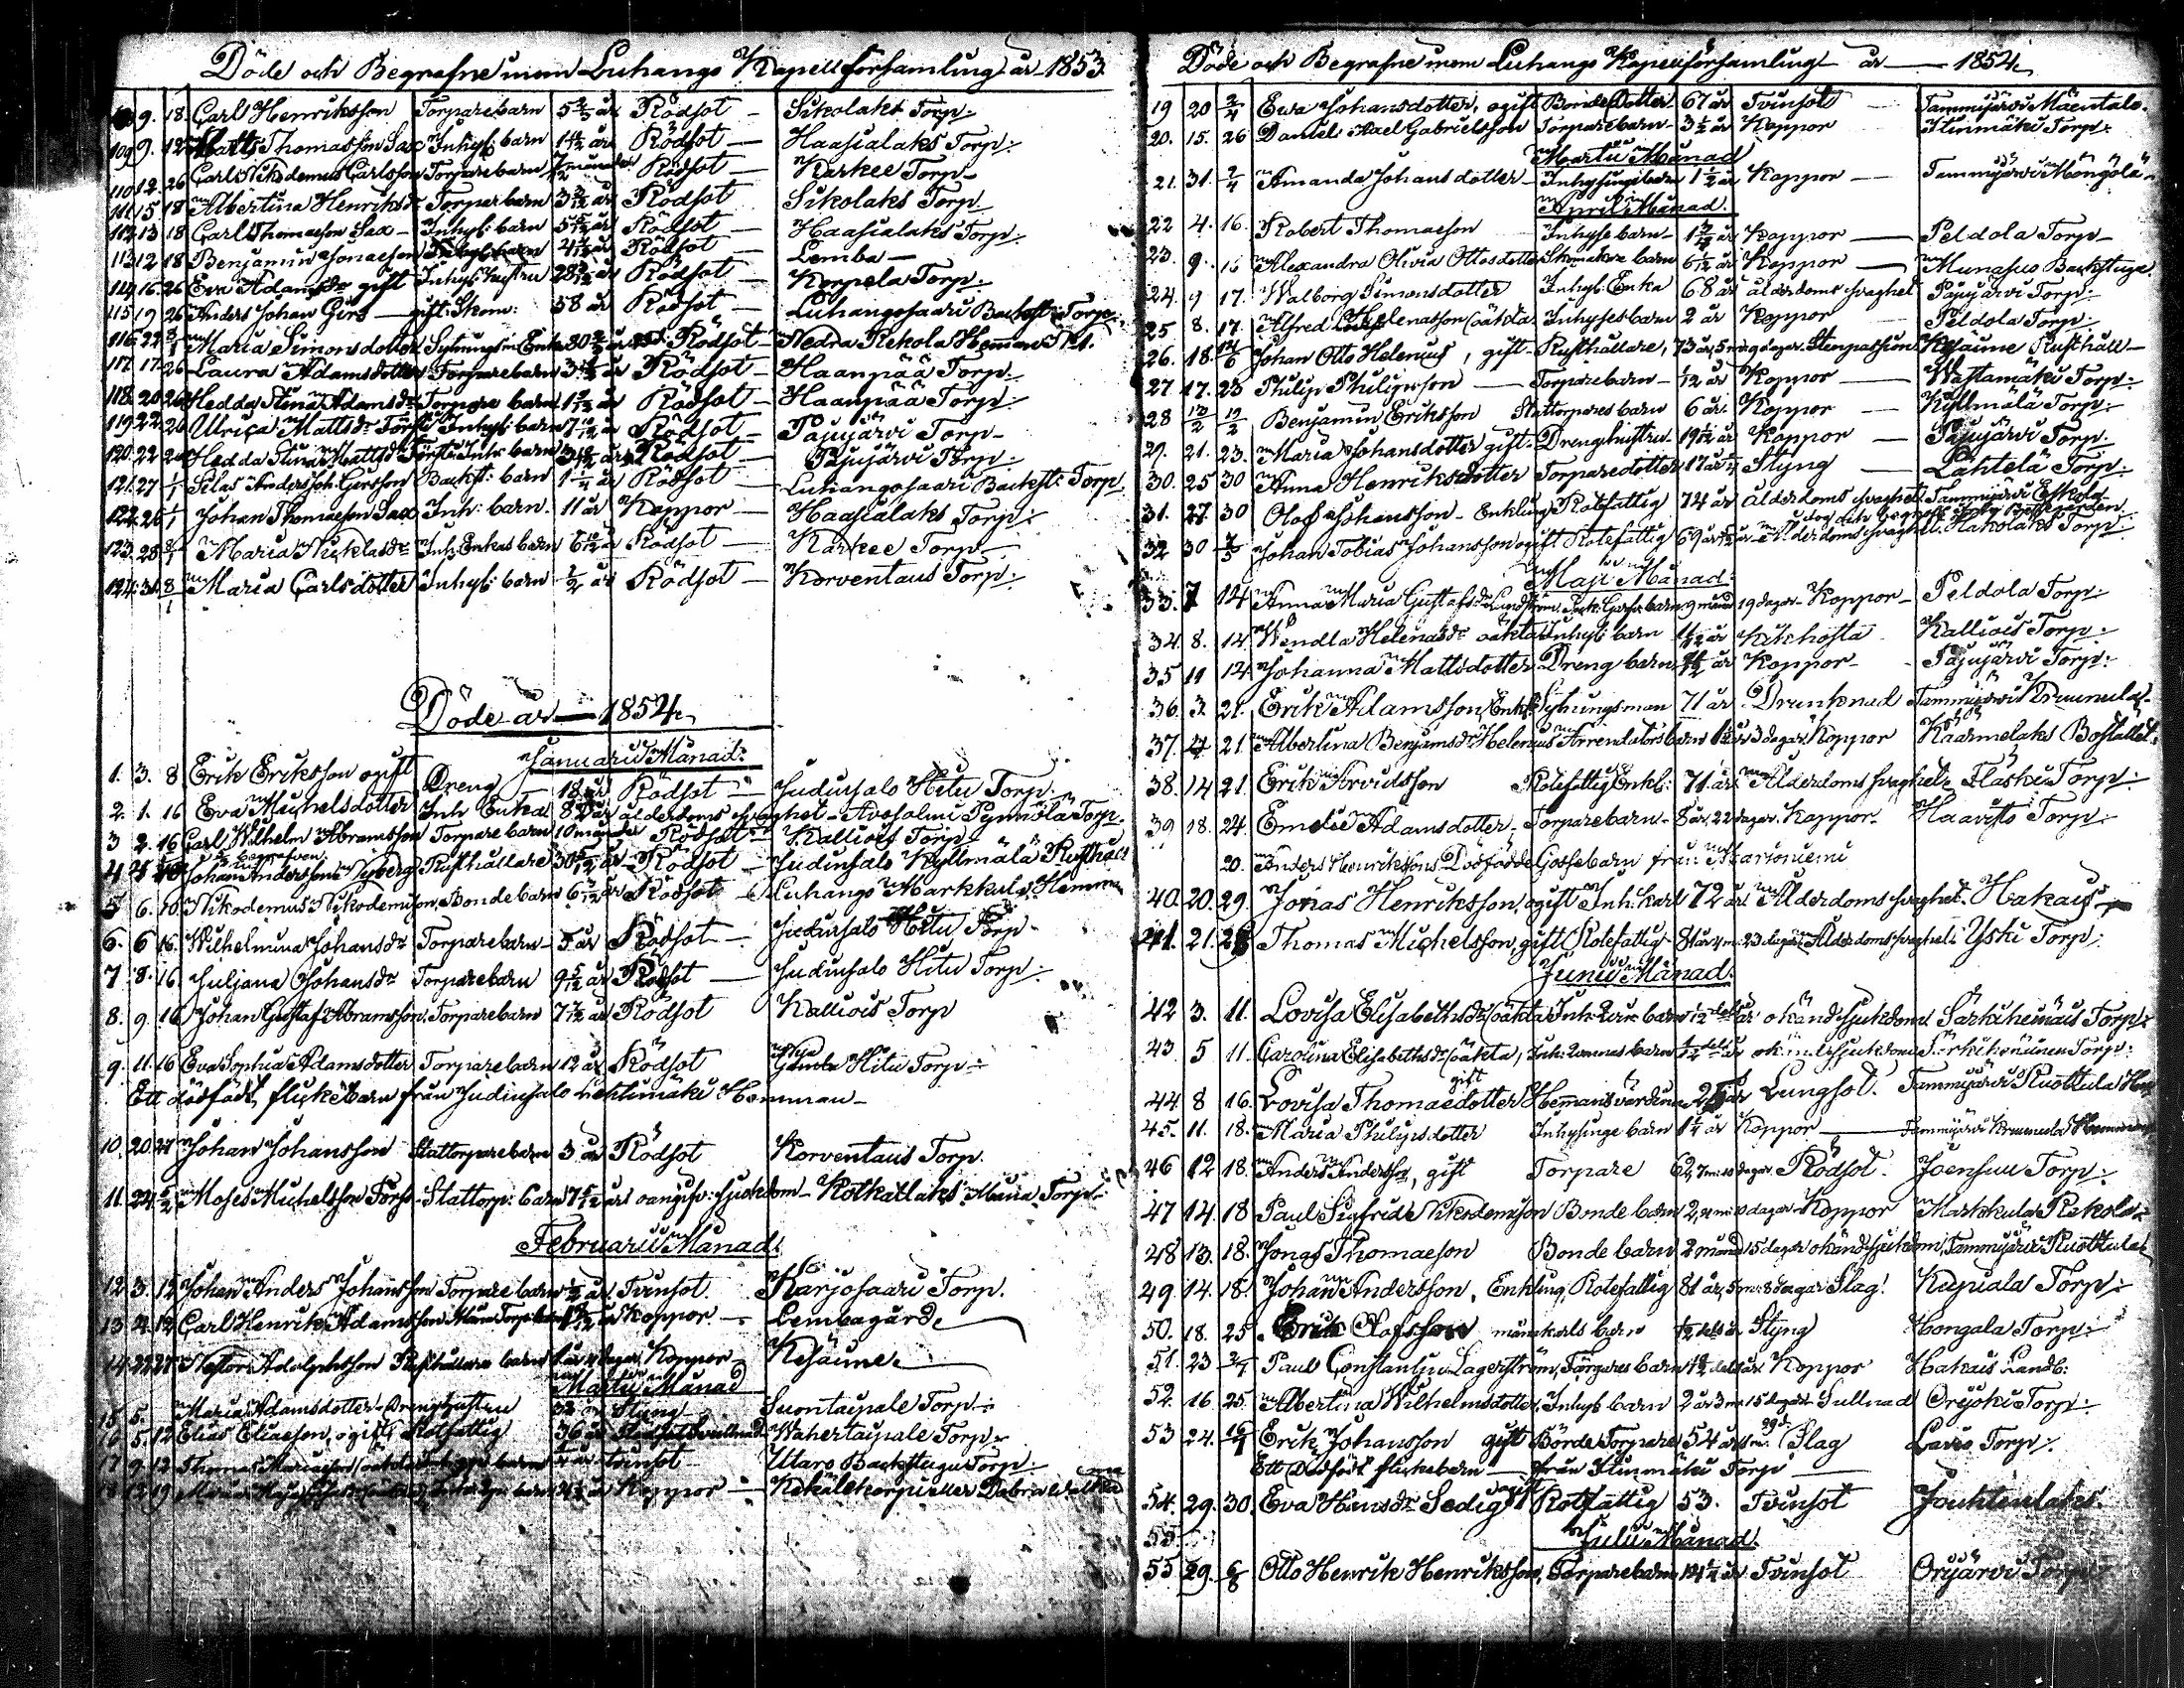 Döde och Begrafne inom Luhango Kapellförsamling år 1853.
9. 18. Carl Henriksson Torparebarn 5 år Rödsot - Sikolaks Torp.
109 9. 12 Matts Thomasson Sax Inhys: barn 1 år Rödsot - Haasialaks Torp.
110 12. 26 Carl Nikodemus Carlsson Torparebarn 7 månader Rödsot - Karkee Torp.
111 15 18 Albertina Henriksdr Torparbarn 3 år Rödsot Sikolaks Torp.
112 13 18 Carl Thomasson Sax - Inhys: barn 5 år Rödsot - Haasialaks Torp.
113 12 18 Benjamin Jonasson barn 4 år Rödsot - Lemba -
114 16. 26 Eva Adamsdr gift Inhys: hustru 28 år Rödsot - Korpela Torp.
115 19 26 Anders Johan Girs - gift Skom: 58 år Rödsot - Luhangosaari Backst: Torp.
116 22 8/1 Maria Simonsdotter Sytnings Enka 80 år Rödsot - Nedra Kekola Hemman No 1.
117. 17. 26 Laura Adamsdotter Torparebarn 3 år Rödsot - Haanpää Torp.
118. 20 26 Hedda Stina Adamsdr Torpare barn 1 år Rödsot - Haanpää Torp.
119 22 26 Ulrica Mattsdr Inhys: barn 7 år Rödsot - Pajujärvi Torp -
120. 22 26 Hedda Stina Mattsdr Inhr barn 3 år Rödsot - Pajujärvi Torp.
121 27 1/1 Silas Anders Joh: Girsson Backst: barn 1 år Rödsot - Luhangosaari Backst: Torp.
122. 26 1/1 Johan Thomasson Sax Inh: barn. 11 år Koppor - Haasialaks Torp.
123. 28 8/1 Maria Nicklasdr Inh. Enkas barn 6 år Rödsot - Karkee Torp -
124. 31. 8/1 Maria Carlsdotter Inhys: barn 1/2 år Rödsot - Korventaus Torp.
Döde år - 1854
Januarii Månad:
1. 3. 8 Erik Eriksson ogift Dreng - 18 år Rödsot - Judinsalo Hitu Torp.
2. 1. 16 Eva Michelsdotter Inh Enka 8 år ålderdoms svaghet - Avosalmi Pynnölä Torp.
3 2. 16 Carl Wilhelm Abramsson Torpare barn 10 månader Rödsot - Kalliois Torp
4 Johan Andersson Nyberg Rusthållare 30 år Rödsot - Judinsalo Kyllmälä Rusthåll
5 6. 16 Nikodemus Nikodemisson, Bonde barn 6 år Rödsot - Luhango Markkula Hemman
6. 6 16. Wilhelmina Johansdr Torparebarn - 5 år Rödsot - Judinsalo Hitu Torp -
7 8. 16. Juljana Johansdr Torparebarn 9 5/12 år Rödsot - Judinsalo Hitu Torp.
8. 9. 16 Johan Gustaf Abramsson Torparebarn 7 år Rödsot Kalliois Torp
9. 11. 16 Eva Sophia Adamsdotter Torparebarn 12 år Rödsot Hitu Torp
Ett dödfödt flickebarn från Judinsalo Lehtimäki Hemman -
10. 20. 24 Johan Johansson Stattorparebarn 3 år Rödsot Korventaus Torp.
11. 24. 5/2 Moses Michelsson Stattorp: barn 7 år oangifv: sjukdom - Kotkatlaks Torp -
Februarii Månad:
12. 3. 12 Johan Anders Johansson Torpare barn 1/2 år Tvinsot. Karjosaari Torp.
13 4. 12 Carl Henrik Adamsson år Koppor - Lembagård
14. 22 27. Nestor Adolphsson Rusthållare barn 1 år dagar Koppor Kejäune.
Martii Månad
15 5. Maria Adamsdotter Drenghustru 32 år Styng Suontaipale Torp
16 5. 12 Elias Eliasson, ogift, Rotfattig 36 år Wahertaipale Torp
17 9. 12 Thomas Mariasson oäkta barn år tvinsot - Utaro Backstugu Torp.
18 12 19 barn år Koppor - Kekälekorpi eller
Döde och Begrafne inom Luhango Kapellförsamling år - 1854
19 20 2/4 Ewa Johansdotter, ogift Bonde Dotter 67 år Tvinsot - Tammijärvi Mäentalo.
20. 15. 26 Daniel Axel Gabrielsson Torparebarn - 3 1/2 år Koppor Itinmäki Torp.
Martii Månad
21. 31. 2/4 Amanda Johansdotter - Inhysinge barn 1 1/2 år Koppor - Tammijärvi Mongola.
April Månad.
22 4. 16. Robert Thomasson Inhyse barn - 1 år Koppor - Peldola Torp -
23. 9. 16 Alexandra Olivia Ottosdotter Skomakare barn 6 år Koppor - Munasuo Backstuga.
24. 9 17. Walborg Simonsdotter Inhys: Enka 68 år ålderdoms svaghet Pajujärvi Torp.
25 8. 17. Alfred Helenasson (oäkta) Inhyses barn 2 år Koppor Peldola Torp.
26. 18. Johan Otto Helenius, gift - Rusthållare, 73 år, 5 dagar Stenpassion Kejäune Rusthåll -
27. 17. 23 Philip Philipsson - Torparebarn - 1/12 år Koppor - Wastamäki Torp.
28 Benjamin Eriksson Stattorpares barn 6 år. Koppor - Kyllmälä Torp.
29. 21. 23. Maria Johansdotter gift. Drenghustru 19 år Koppor - Pajujärvi Torp.
30. 25 30 Anna Henriksdotter Torparedotter 17 år Styng - Lahtelä Torp.
31. 27. 30 Olof Johansson - Enkling, Rotefattig 74 år ålderdoms svaghet Tammijärvi Eskola -
32 30 7/5 Johan Tobias Johansson ogift Rotefattig 69 år Ålderdoms svaghet. Hakolaks Torp.
Maji Månad.
33. 7 14 Anna Maria Gustafsdr Lundström barn 9 månad 19 dagar - Koppor - Peldola Torp.
34. 8. 14. Wendla Helenasdr oäkta Inhys: barn år Kikhosta Kalliois Torp.
35 11 14. Johanna Mattsdotter Dreng barn år Koppor - Pajujärvi Torp.
36. 3. 21. Erik Adamsson Enkl. Sytningsman 71 år Drunknad Tammijärvi Krunula -
37. 4 21 Albertina Benjamsdr Helenius Arrendators barn år 3 dagar Koppor Käärmelaks Bostället.
38. 14 21. Erik Arvidsson Rotefattig Enkl: 71 år Ålderdoms svaghet Flaski Torp.
39 18. 24. Emelie Adamsdotter - Torparebarn - 8 år. 22 dagar. Koppor. Haavisto Torp.
20. Anders Henrikssons Dödfödde Gossebarn från Harioniemi
40. 20. 29. Jonas Henriksson, ogift Inh. karl 72 år Ålderdoms svaghet. Hakaus
41. 21. 28 Thomas Michelsson, gift Rotefattig - 81 år 4 m. 23 dagar Ålderdoms svaghet. Yski Torp.
Junii Månad.
42 3. 11. Lovisa Elisabethsdr (oäkta) Inh. barn 1/12 dels år okänd sjukdom Särkiheinäis Torp.
43. 5 11. Carolina Elisabethsdr (oäkta), Inh. barn 1/12 dels år okänd sjukdom Särkiheinänen Torp.
44 8 16. Lovisa Thomasdotter gift Hemmansvärdinna 25 år Lungsot. Tammijärvi Ruottula
45. 11. 18. Maria Philipsdotter Inhysinge barn 1 1/4 år Koppor - Tammijärvi Krunula Hemman
46 12 18. Anders Andersson, gift Torpare 62, 7 m: 10 dagar Rödsot. Joensuu Torp.
47 14. 18 Paul Sigfrid Nikodemisson Bonde barn 2, dagar Koppor Markkula Kekola.
48 13. 18. Jonas Thomasson Bonde barn 2 månad 15 dagar okänd sjukdom, Tammijärvi Ruottula
49 14. 18. Johan Andersson, Enkling, Rotefattig 81 år, 5 m: 8 dagar Slag. Kupiala Torp.
50. 18. 25 Erik Olofsson barn 1/2 dels år Styng Hongala Torp.
51. 23 2/7 Paul Constantin Lagerström, Färgares barn dels år Koppor Hakais Landb:
52. 16 25. Albertina Wilhelmsdotter, Inhys barn 2 år 3 m 15 dagar Sullnad Oryoki Torp.
53 24. Erik Johansson gift Börde Torpare 54 år Slag Lavis Torp.
Ett Dödfödt flickebarn - från Itinmäki Torp -
54. 29. 30. Eva Hinsdr Sedig Rotfattig 53. Tvinsot Jouhtenlaks.
55
Julii Månad.
55 29. 6/8 Otto Henrik Henriksson, Torparebarn år Tvinsot Oryärvi Torp